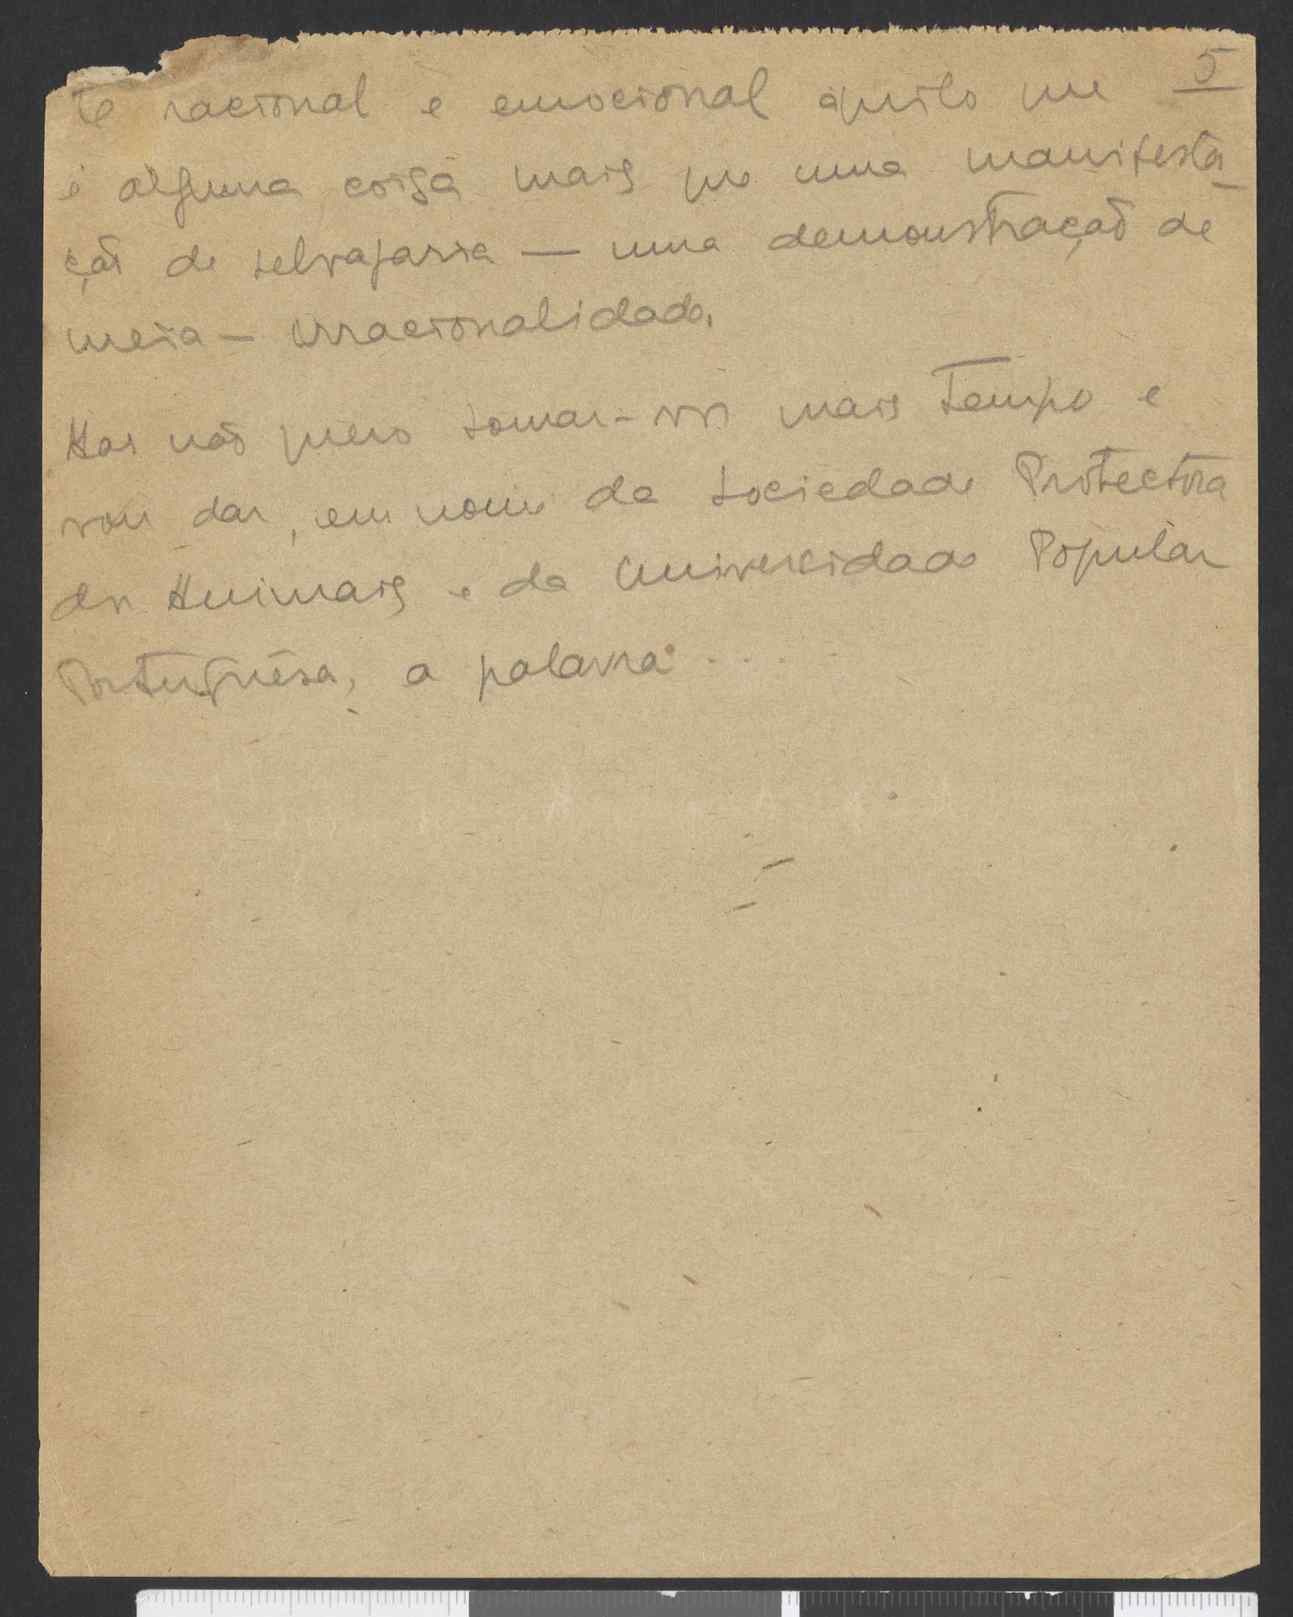 5
te racional e emocional àquilo que
é alguma coisa mais que uma manifesta-
ção de selvajaria — uma demonstração de
meia-irracionalidade.
Mas não quero tomar-vos mais tempo e
vou dar, em nome da Sociedade Protectora
dos Animais e da Universidade Popular
Portuguêsa, a palavra: . . . .